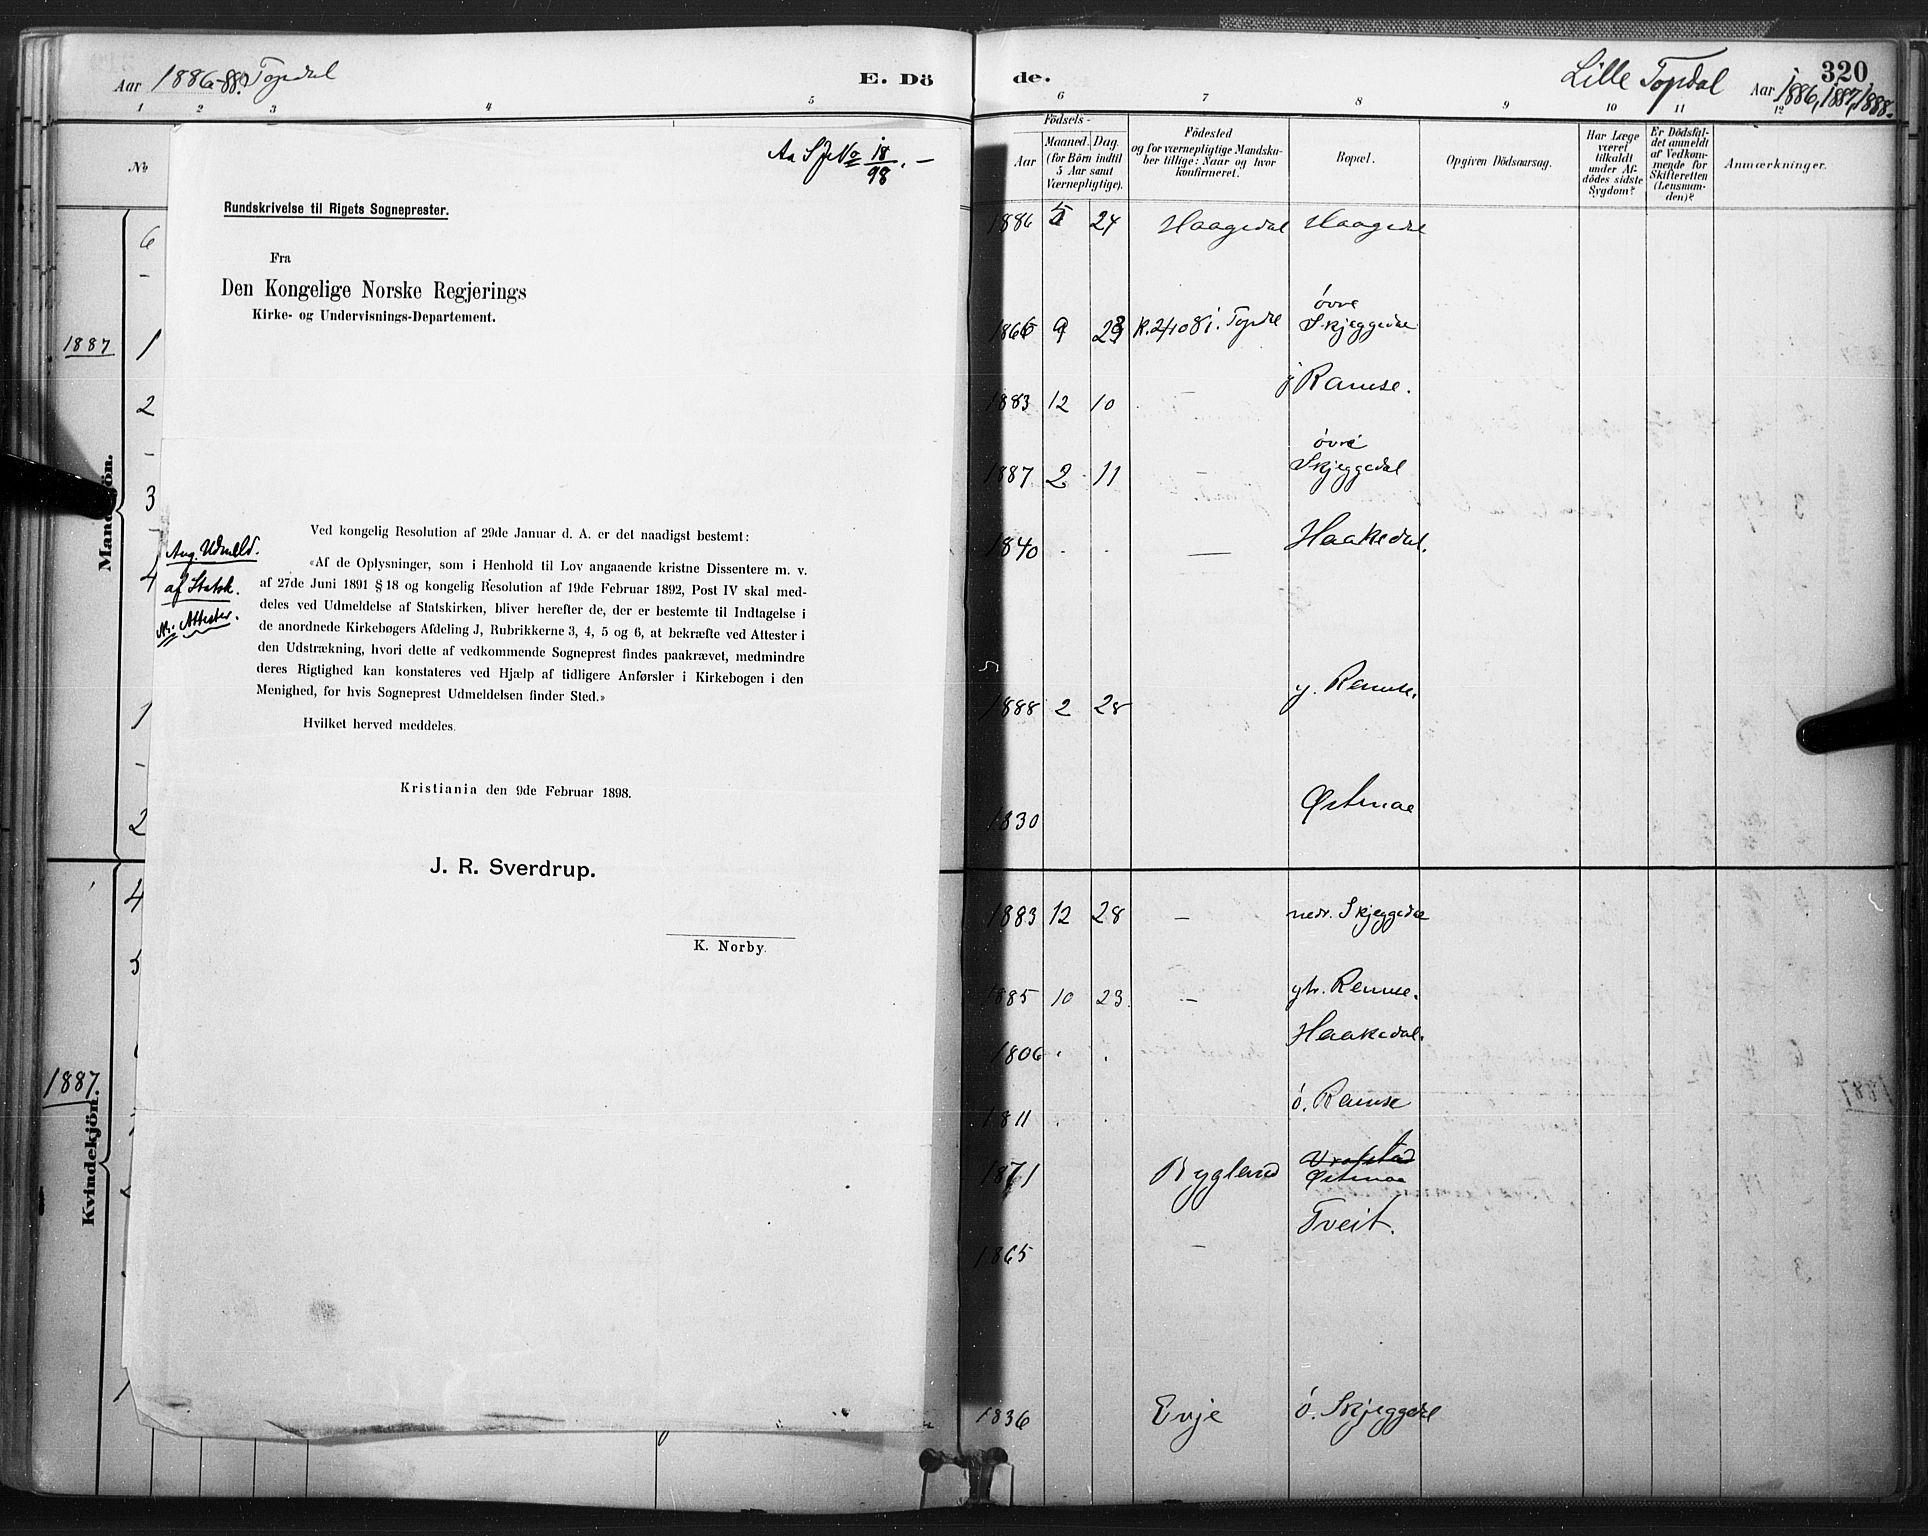 Aar 1886-88. Topdal
E. Dö
1 2 3 4 5
No
Mandkjön.
Kvindekjön.
6
-
1887 1
2
-
3
-
4
1
-
2
4
5
1887
Aa S JNo 18/98. —
Rundskrivelse til Rigets Sogneprester.
Fra
Den Kongelige Norske Regjerings
Kirke- og Undervisnings-Departement.
Ang. Udmeld.
af Statsk.
Attester.
Ved kongelig Resolution af 29de Januar d. A. er det naadigst bestemt:
«Af de Oplysninger, som i Henhold til Lov angaaende kristne Dissentere m. v.
af 27de Juni 1891 § 18 og kongelig Resolution af 19de Februar 1892, Post IV skal med-
deles ved Udmeldelse af Statskirken, bliver herefter de, der er bestemte til Indtagelse i
de anordnede Kirkebøgers Afdeling J, Rubrikkerne 3, 4, 5 og 6, at bekræfte ved Attester i
den Udstrækning, hvori dette af vedkommende Sogneprest findes paakrævet, medmindre
deres Rigtighed kan konstateres ved Hjælp af tidligere Anførsler i Kirkebogen i den
Menighed, for hvis Sogneprest Udmeldelsen finder Sted.»
Hvilket herved meddeles.
Kristiania den 9de Februar 1898.
J. R. Sverdrup.
K. Norby.
de.
Lille Topdal
320
Aar 1886, 1887, 1888.
6 7 8 9 10 11 12
Födsels-
Aar
Maaned. Dag.
(for Börn indtil
5 Aar samt
Værnepligtige).
Födested
og for værnepligtige Mandskaber tillige: Naar og hvor
konfirmeret.
Bopæl.
Opgiven Dödsaarsag.
Har Læge
været
tilkaldt
under Af-
dödes sidste
Sygdom?
Er Dödsfal-
det anmeldt
af Vedkom-
mende for
Skifteretten
(Lensman-
den)?
Anmærkninger.
1886 5 24 Haagedal Haagedal
1866 9 23 K. 2/10 81. Topdal övre Skjeggedal
1883 12 10 - y Ramse.
1887 2 11 - övre Skjeggedal
1840 . . — Haakedal.
1888 2 28 y. Ramse.
1830 Østmoe
1883 12 28 - nedr. Skjeggedal
1885 10 23 - ytr. Ramse.
1806 . . Haakedal.
1811 . . ö. Ramse
1871 Bygland Vrolstad Østmoe
1865 - Tveit.
1836 Evje ö. Skjeggedal